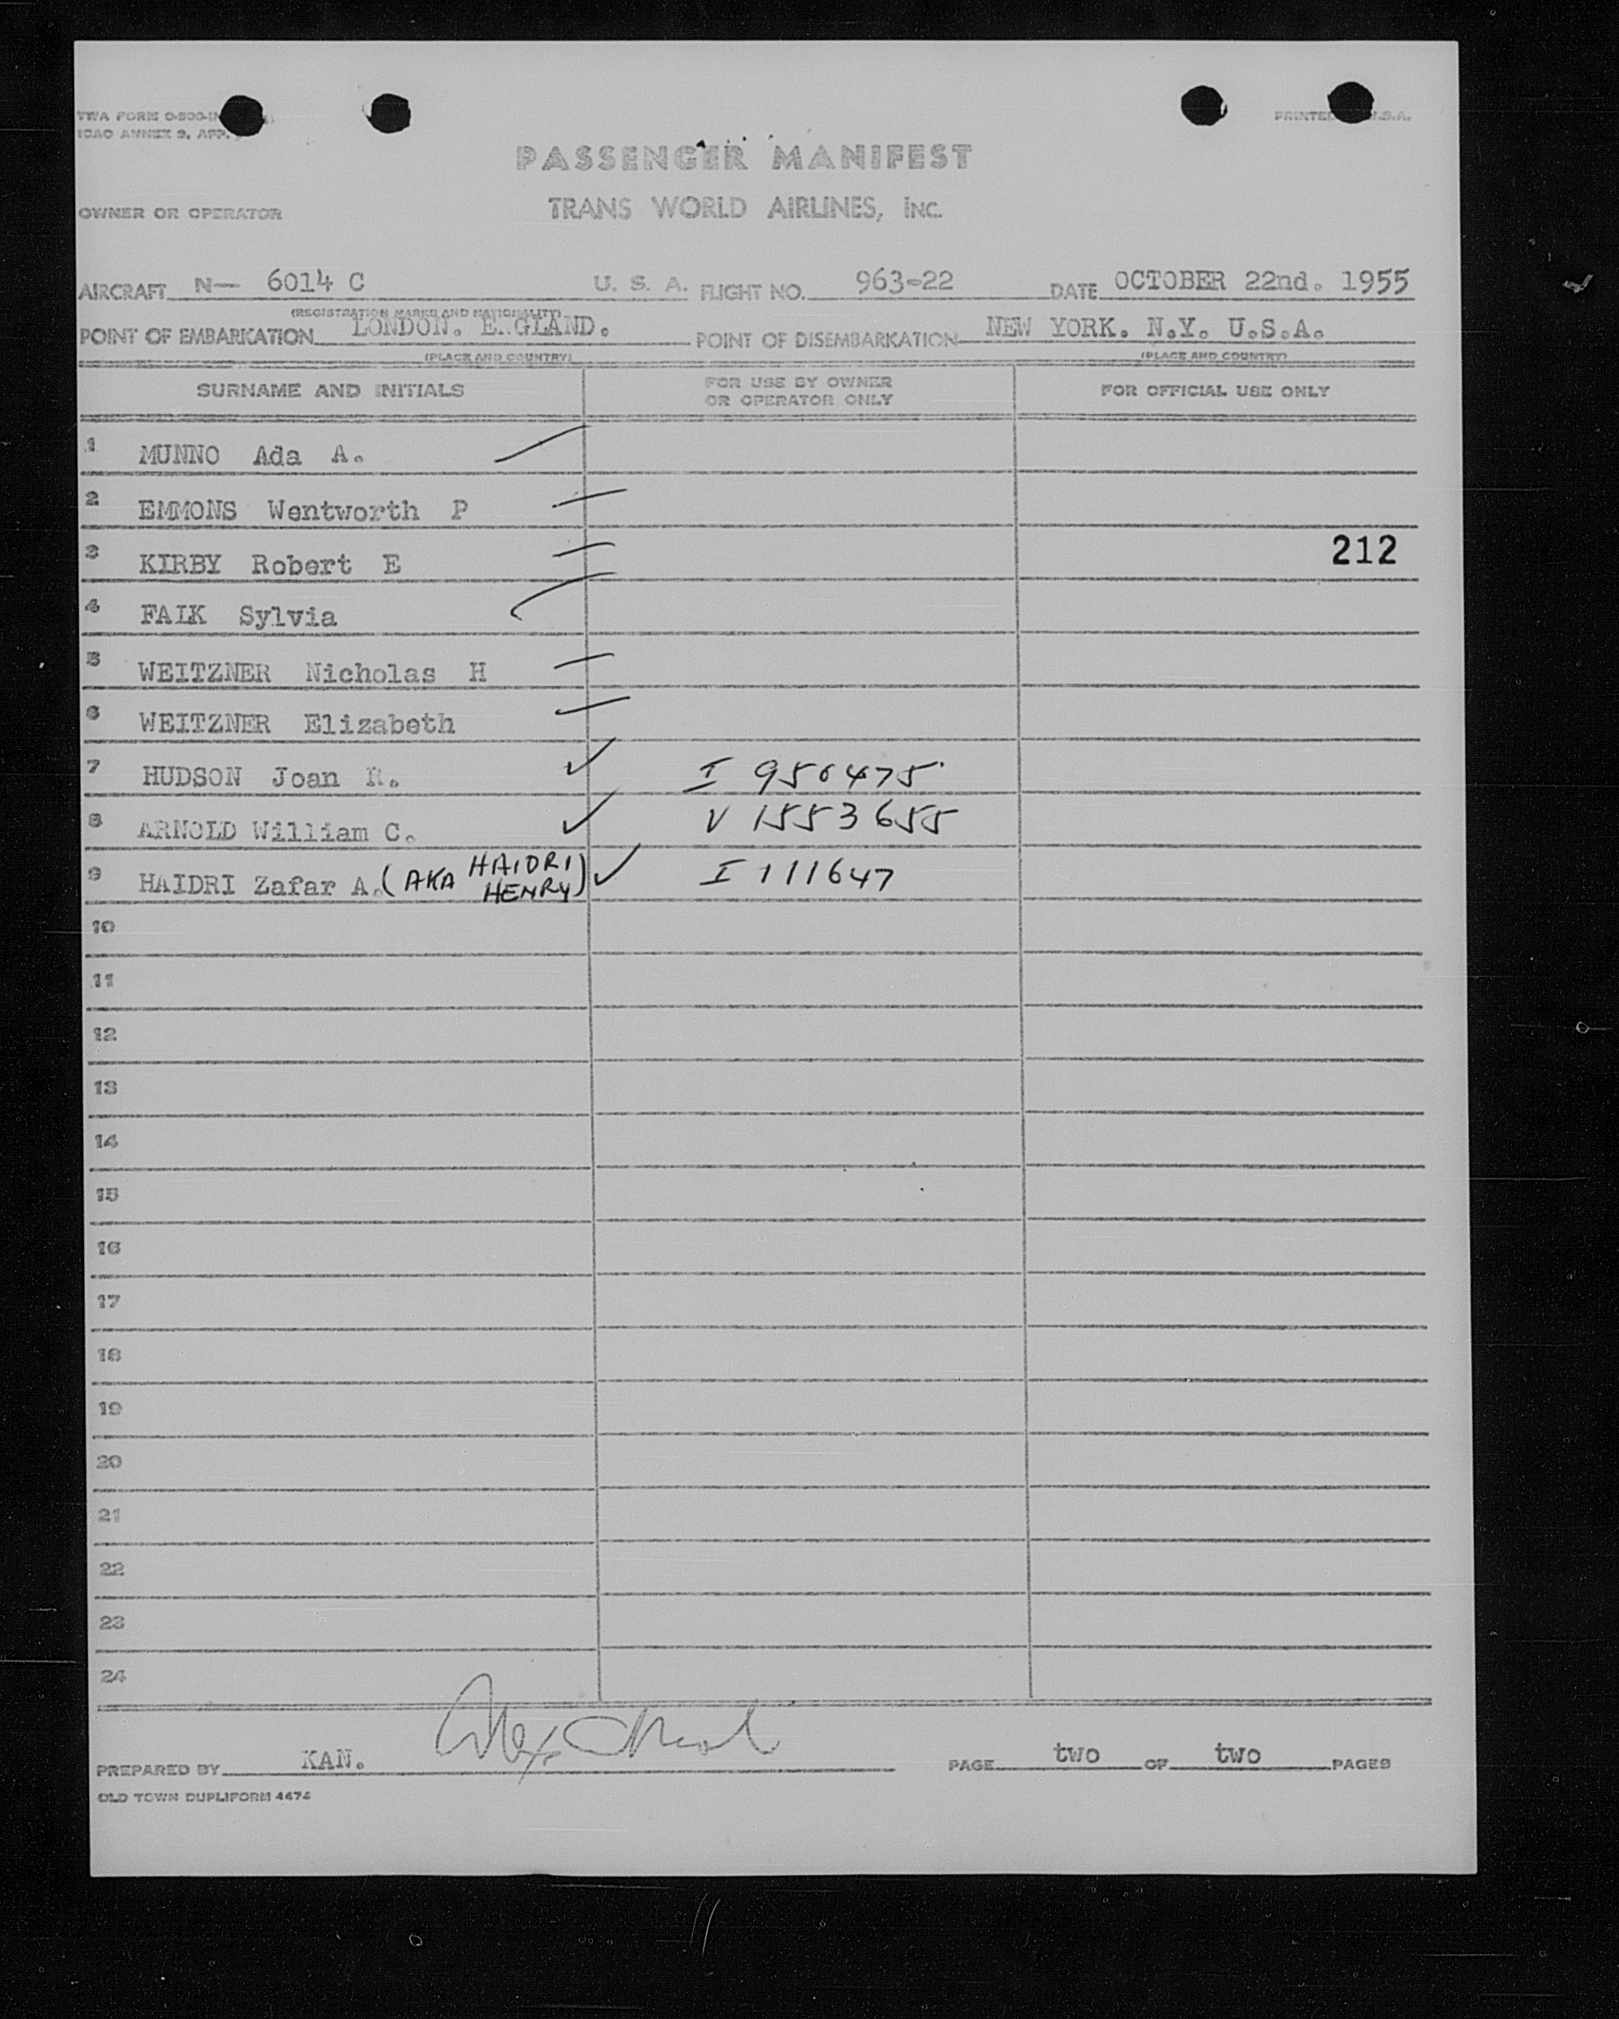 TWA FORM
ICAO ANNEX 9, APP.
PRINTED U.S.A.
PASSENGER MANIFEST
OWNER OR OPERATOR TRANS WORLD AIRLINES, INC.
AIRCRAFT N— 6014 C U. S. A. FLIGHT NO. 963-22 DATE OCTOBER 22nd. 1955
(REGISTRATION MARKS AND NATIONALITY)
POINT OF EMBARKATION LONDON. ENGLAND. POINT OF DISEMBARKATION NEW YORK. N.Y. U.S.A.
(PLACE AND COUNTRY) (PLACE AND COUNTRY)
SURNAME AND INITIALS FOR USE BY OWNER OR OPERATOR ONLY FOR OFFICIAL USE ONLY
1 MUNNO Ada A.
2 EMMONS Wentworth P
3 KIRBY Robert E 212
4 Sylvia
5 WEITZNER Nicholas H
6 WEITZNER Elizabeth
7 HUDSON Joan R. I 956475
8 ARNOLD William C. V 1553655
9 HAIDRI Zafar A. (AKA HAIDRI HENRY) I 111647
10
11
12
13
14
15
16
17
18
19
20
21
22
23
24
PREPARED BY KAN. PAGE two OF two PAGES
OLD TOWN DUPLIFORM 4474